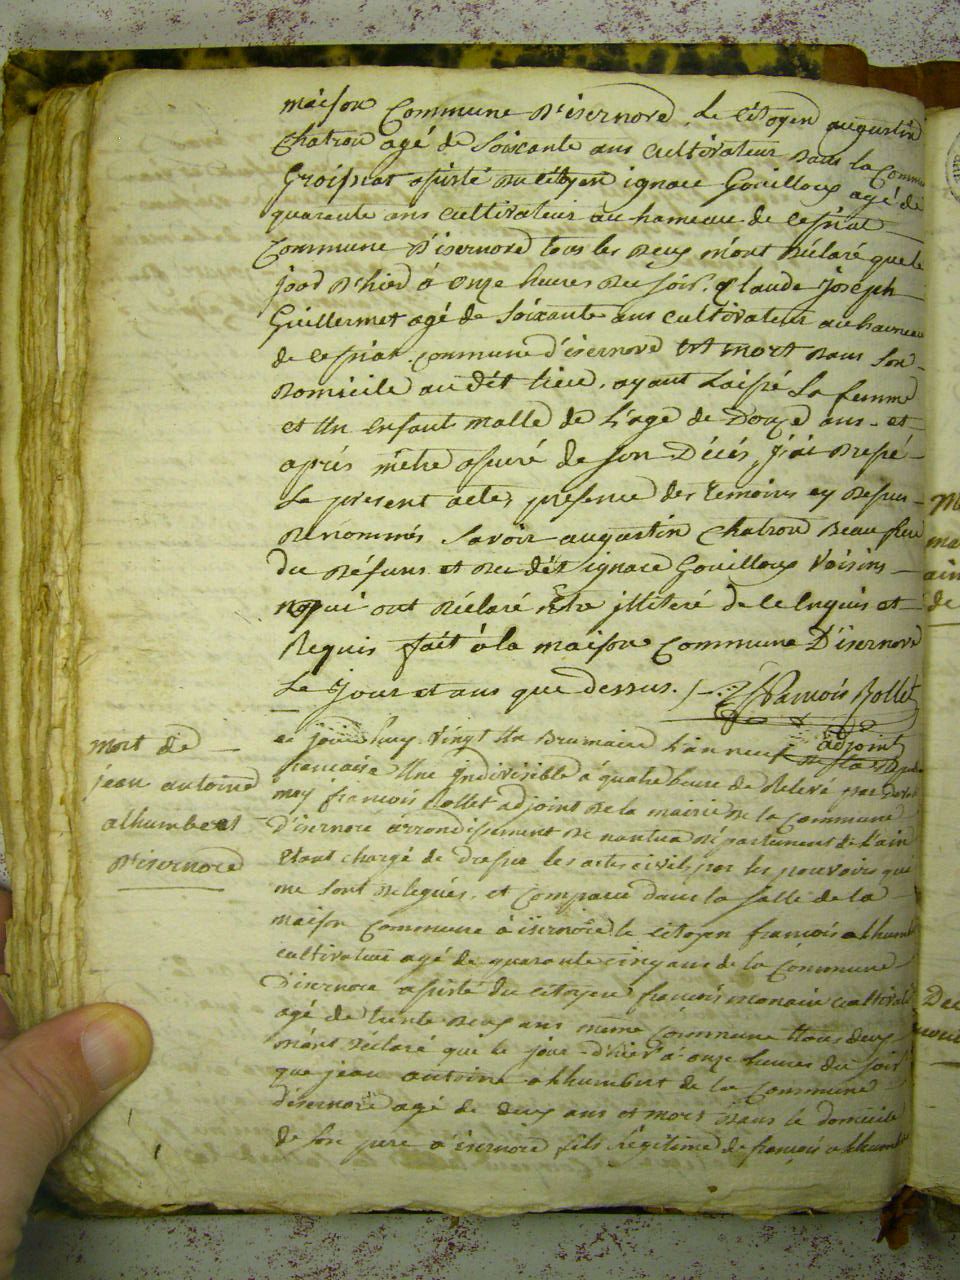 maison Commune d'isernore. le Citoyen augustin
Chatron agé de Soixante ans Cultivateur dans la Commune
Groissiat assisté du Citoyen ignace Gouilloux agé de
quarante ans Cultivateur au hameau de Cessiat
Commune d'isernore tous les deux m'ont déclaré que le
jour d'hier à onze heures du soir. Claude Joseph
Guillermet agé de Soixante ans Cultivateur au hameau
de Cessiat Commune d'isernore est mort dans son
Domicile au dit lieu, ayant Laissé Sa femme
et un Enfant malle de L'age de Douze ans. et
après m'être assuré de son Décés, j'ai
Le présent acte, présence des temoins
Denommés Savoir augustin Chatron Beau frere
du défunt et du dit ignace Gouilloux Voisins
qui ont déclaré être illiteré de ce Enquis et
Requis fait à la maison Commune D'isernore
Le Jour et ans que dessus. François Bollet
adjoint
mort de
jean antoine
alhumbert
d'isernore
ce jourd'huy Vingt un Brumaire L'an neuf de la Repu
francaise Une indivisible à quatre heure de Relevé par devant
moy françois Bollet adjoint de la mairie de la Commune
D'isernore arrondissement de nantua Département de L'ain
Etant chargé de dresser les actes civils, par les pouvoirs qui
me sont delegués, et Comparu dans la salle de la
maison Commune à isernore le citoyen françois alhumbert
cultivateur agé de quarante cinq ans de la Commune
D'isernore assisté du Citoyen françois monain cultivateur
agé de trente deux ans même Commune tous deux
m'ont déclaré que le jour d'hier à onze heures du soir
que jean antoine alhumbert de la Commune
d'isernore agé de deux ans est mort dans le domicile
de son pere à isernore fils légitime de françois alhumbert